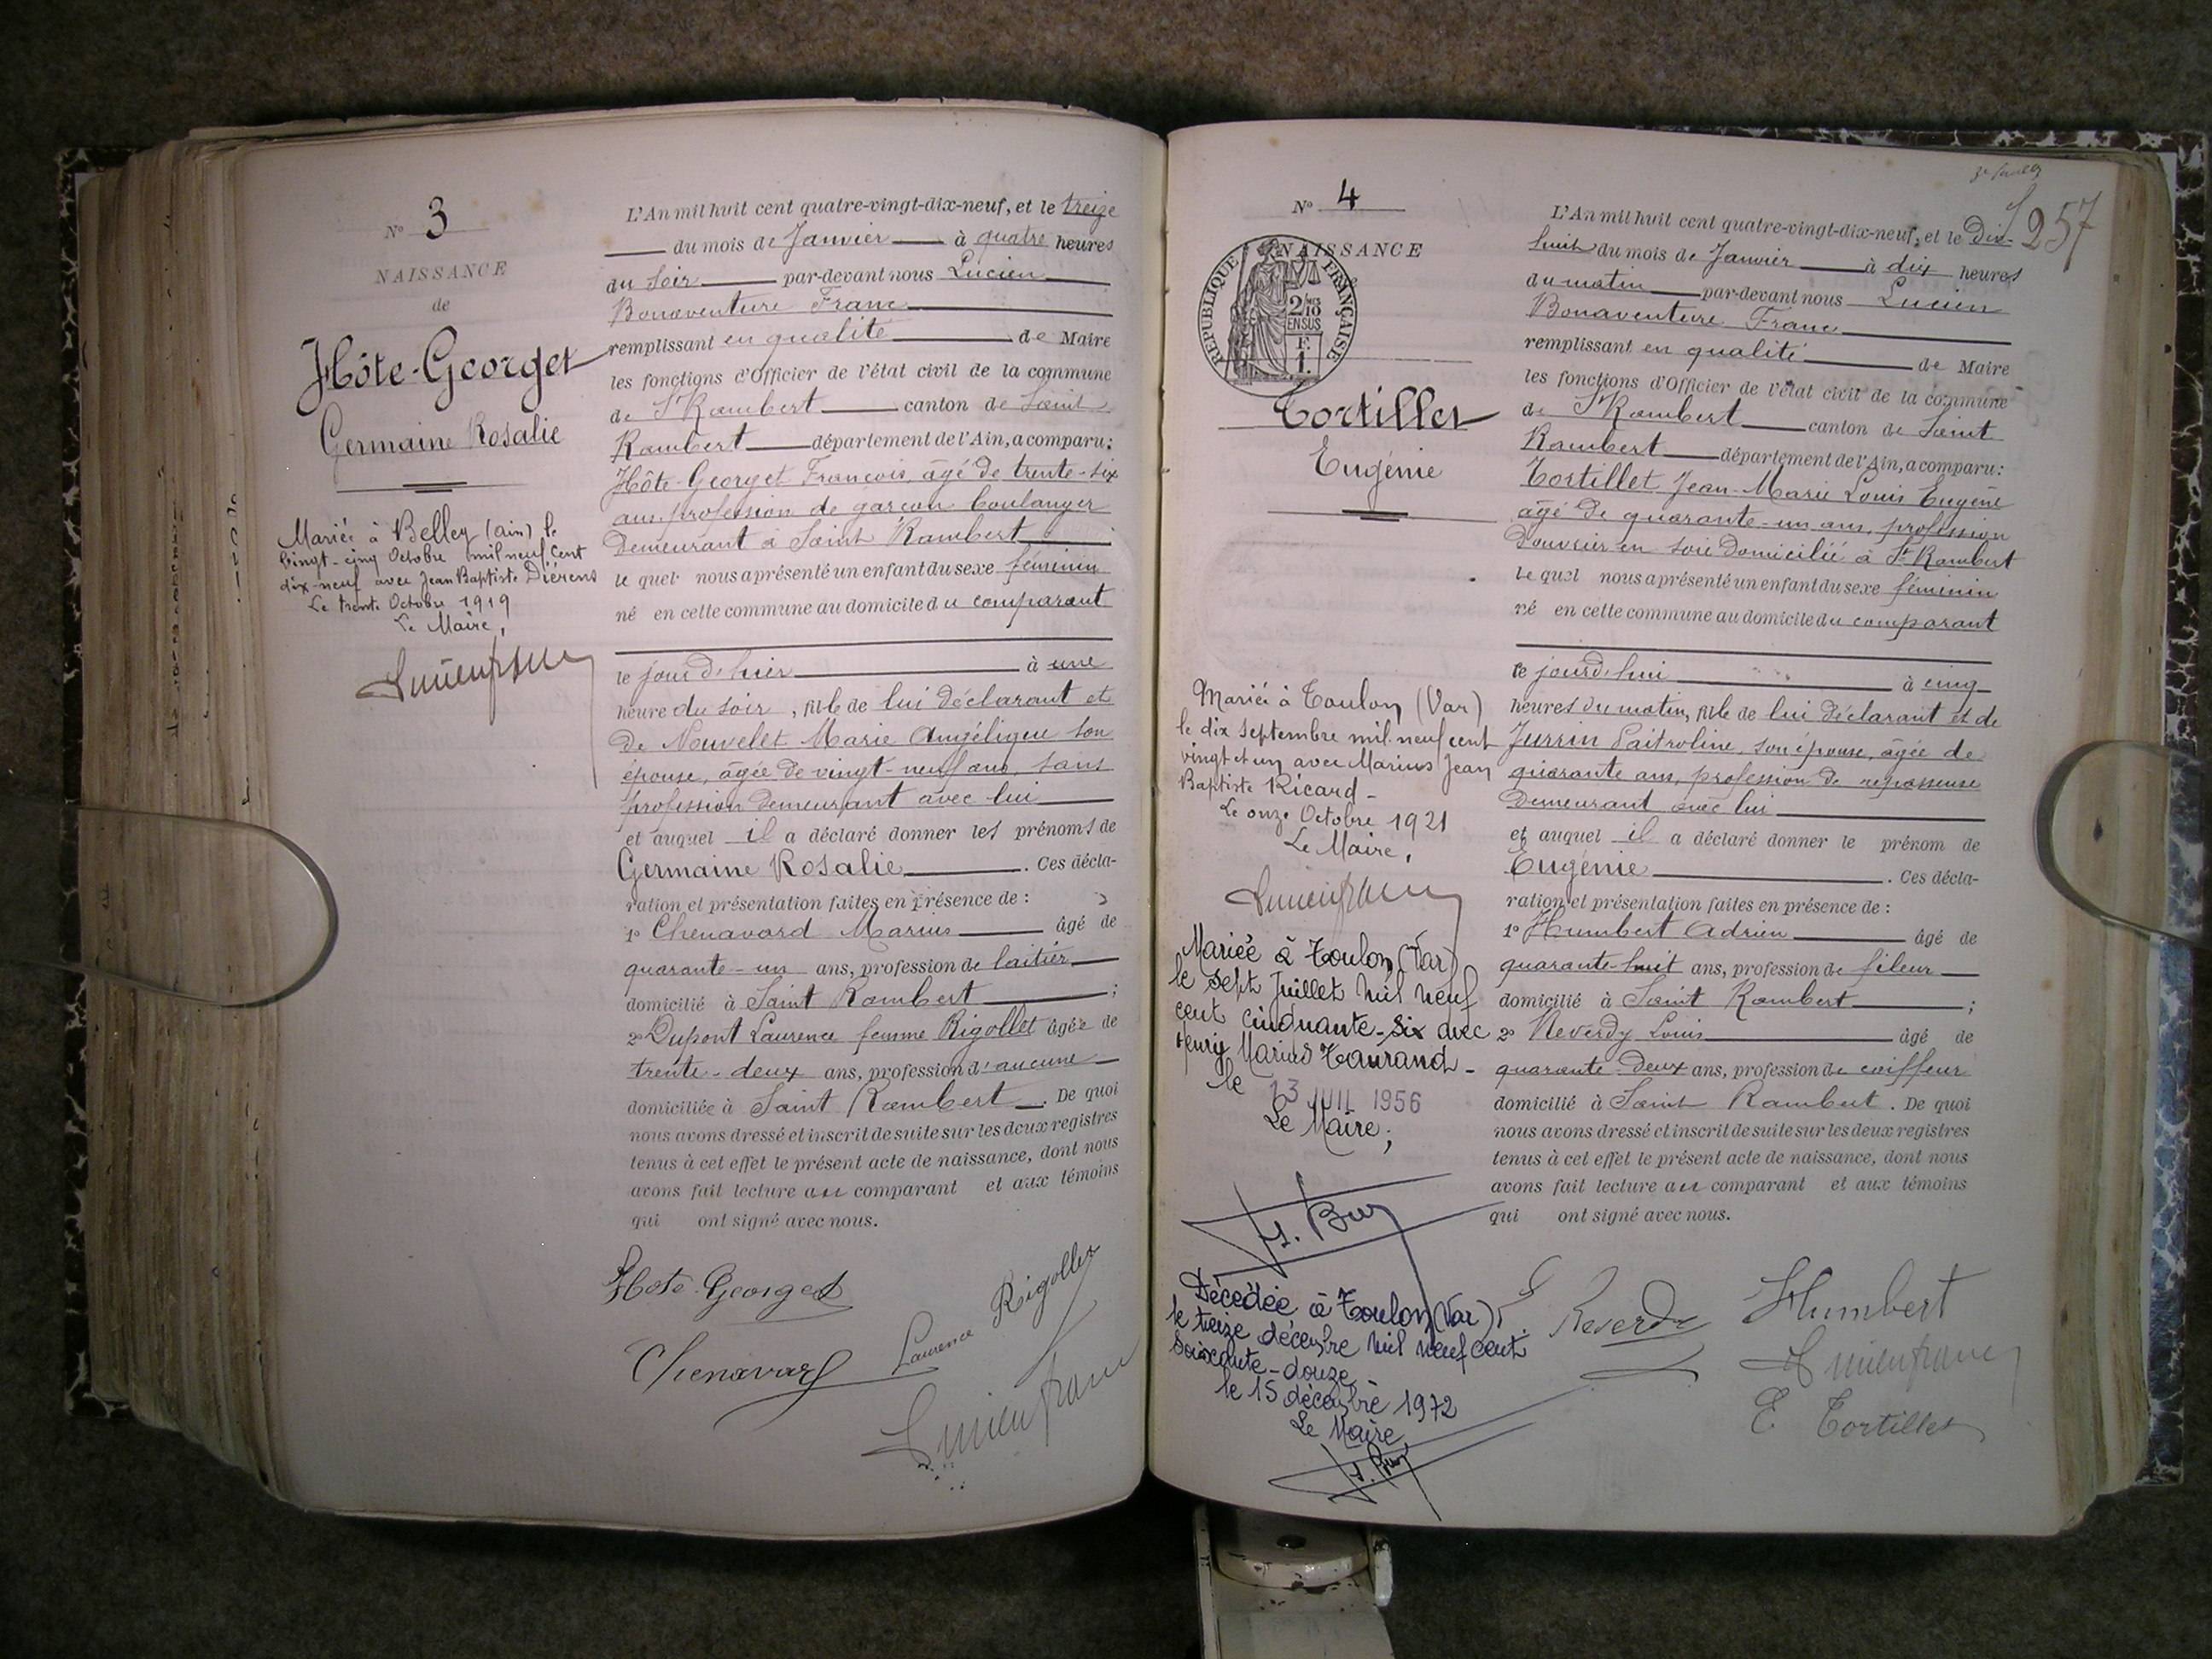 N° 3
NAISSANCE
de
Hôte-Georget
Germaine Rosalie
Mariée à Belley (Ain) le
vingt-cinq Octobre mil neuf cent
dix-neuf avec Jean Baptiste Dièrens
Le trente Octobre 1919
Le Maire,
L'An mil huit cent quatre-vingt-dix-neuf, et le treize
du mois de Janvier à quatre heures
du soir par-devant nous Lucien
Bonaventure Franc
remplissant en qualité de Maire
les fonctions d'Officier de l'état civil de la commune
de St Rambert canton de Saint
Rambert département de l'Ain, a comparu:
Hôte-Georget François, âgé de trente-six
ans, profession de garçon boulanger
demeurant à Saint Rambert
lequel nous a présenté un enfant du sexe féminin
né en cette commune au domicile du comparant
le jour d'hier à une
heure du soir, fille de lui déclarant et
de Nouvelet Marie Angélique son
épouse, âgée de vingt-neuf ans, sans
profession demeurant avec lui
et auquel il a déclaré donner les prénoms de
Germaine Rosalie. Ces décla-
ration et présentation faites en présence de :
1° Chenavard Marius âgé de
quarante-un ans, profession de laitier
domicilié à Saint Rambert ;
2° Dupont Laurence femme Rigollet âgée de
trente-deux ans, profession d'aucune
domiciliée à Saint Rambert. De quoi
nous avons dressé et inscrit de suite sur les deux registres
tenus à cet effet le présent acte de naissance, dont nous
avons fait lecture au comparant et aux témoins
qui ont signé avec nous.
Hote-Georget
Chenavard Laurence Rigollet
Lucien Franc
257
N° 4
NAISSANCE
RÉPUBLIQUE FRANÇAISE
2/10 MES
EN SUS
F.
1.
Tortillet
Eugénie
Mariée à Toulon (Var)
le dix septembre mil neuf cent
vingt et un avec Marius Jean
Baptiste Ricard -
Le onze Octobre 1921
Le Maire,
Mariée à Toulon (Var)
le sept Juillet mil neuf
cent cinquante-six avec
Henry Marius Taurand -
le 13 JUIL 1956
Le Maire ;
Décédée à Toulon (Var)
le treize décembre mil neuf cent
soixante-douze
le 15 décembre 1972
Le Maire
L'An mil huit cent quatre-vingt-dix-neuf, et le dix-
huit du mois de Janvier à dix heures
du matin par-devant nous Lucien
Bonaventure Franc
remplissant en qualité de Maire
les fonctions d'Officier de l'état civil de la commune
de St Rambert canton de Saint
Rambert département de l'Ain, a comparu:
Tortillet Jean-Marie Louis Eugène
âgé de quarante-un ans, profession
d'ouvrier en soie domicilié à St Rambert
lequel nous a présenté un enfant du sexe féminin
né en cette commune au domicile du comparant
le jourd'hui à cinq
heures du matin, fille de lui déclarant et de
Jurrin, son épouse, âgée de
quarante ans, profession de repasseuse
demeurant avec lui
et auquel il a déclaré donner le prénom de
Eugénie. Ces décla-
ration et présentation faites en présence de :
1° Humbert Adrien âgé de
quarante-huit ans, profession de fileur
domicilié à Saint Rambert ;
2° Reverdy Louis âgé de
quarante-deux ans, profession de coiffeur
domicilié à Saint Rambert. De quoi
nous avons dressé et inscrit de suite sur les deux registres
tenus à cet effet le présent acte de naissance, dont nous
avons fait lecture au comparant et aux témoins
qui ont signé avec nous.
Reverdy Humbert
Lucien Franc
E Tortillet